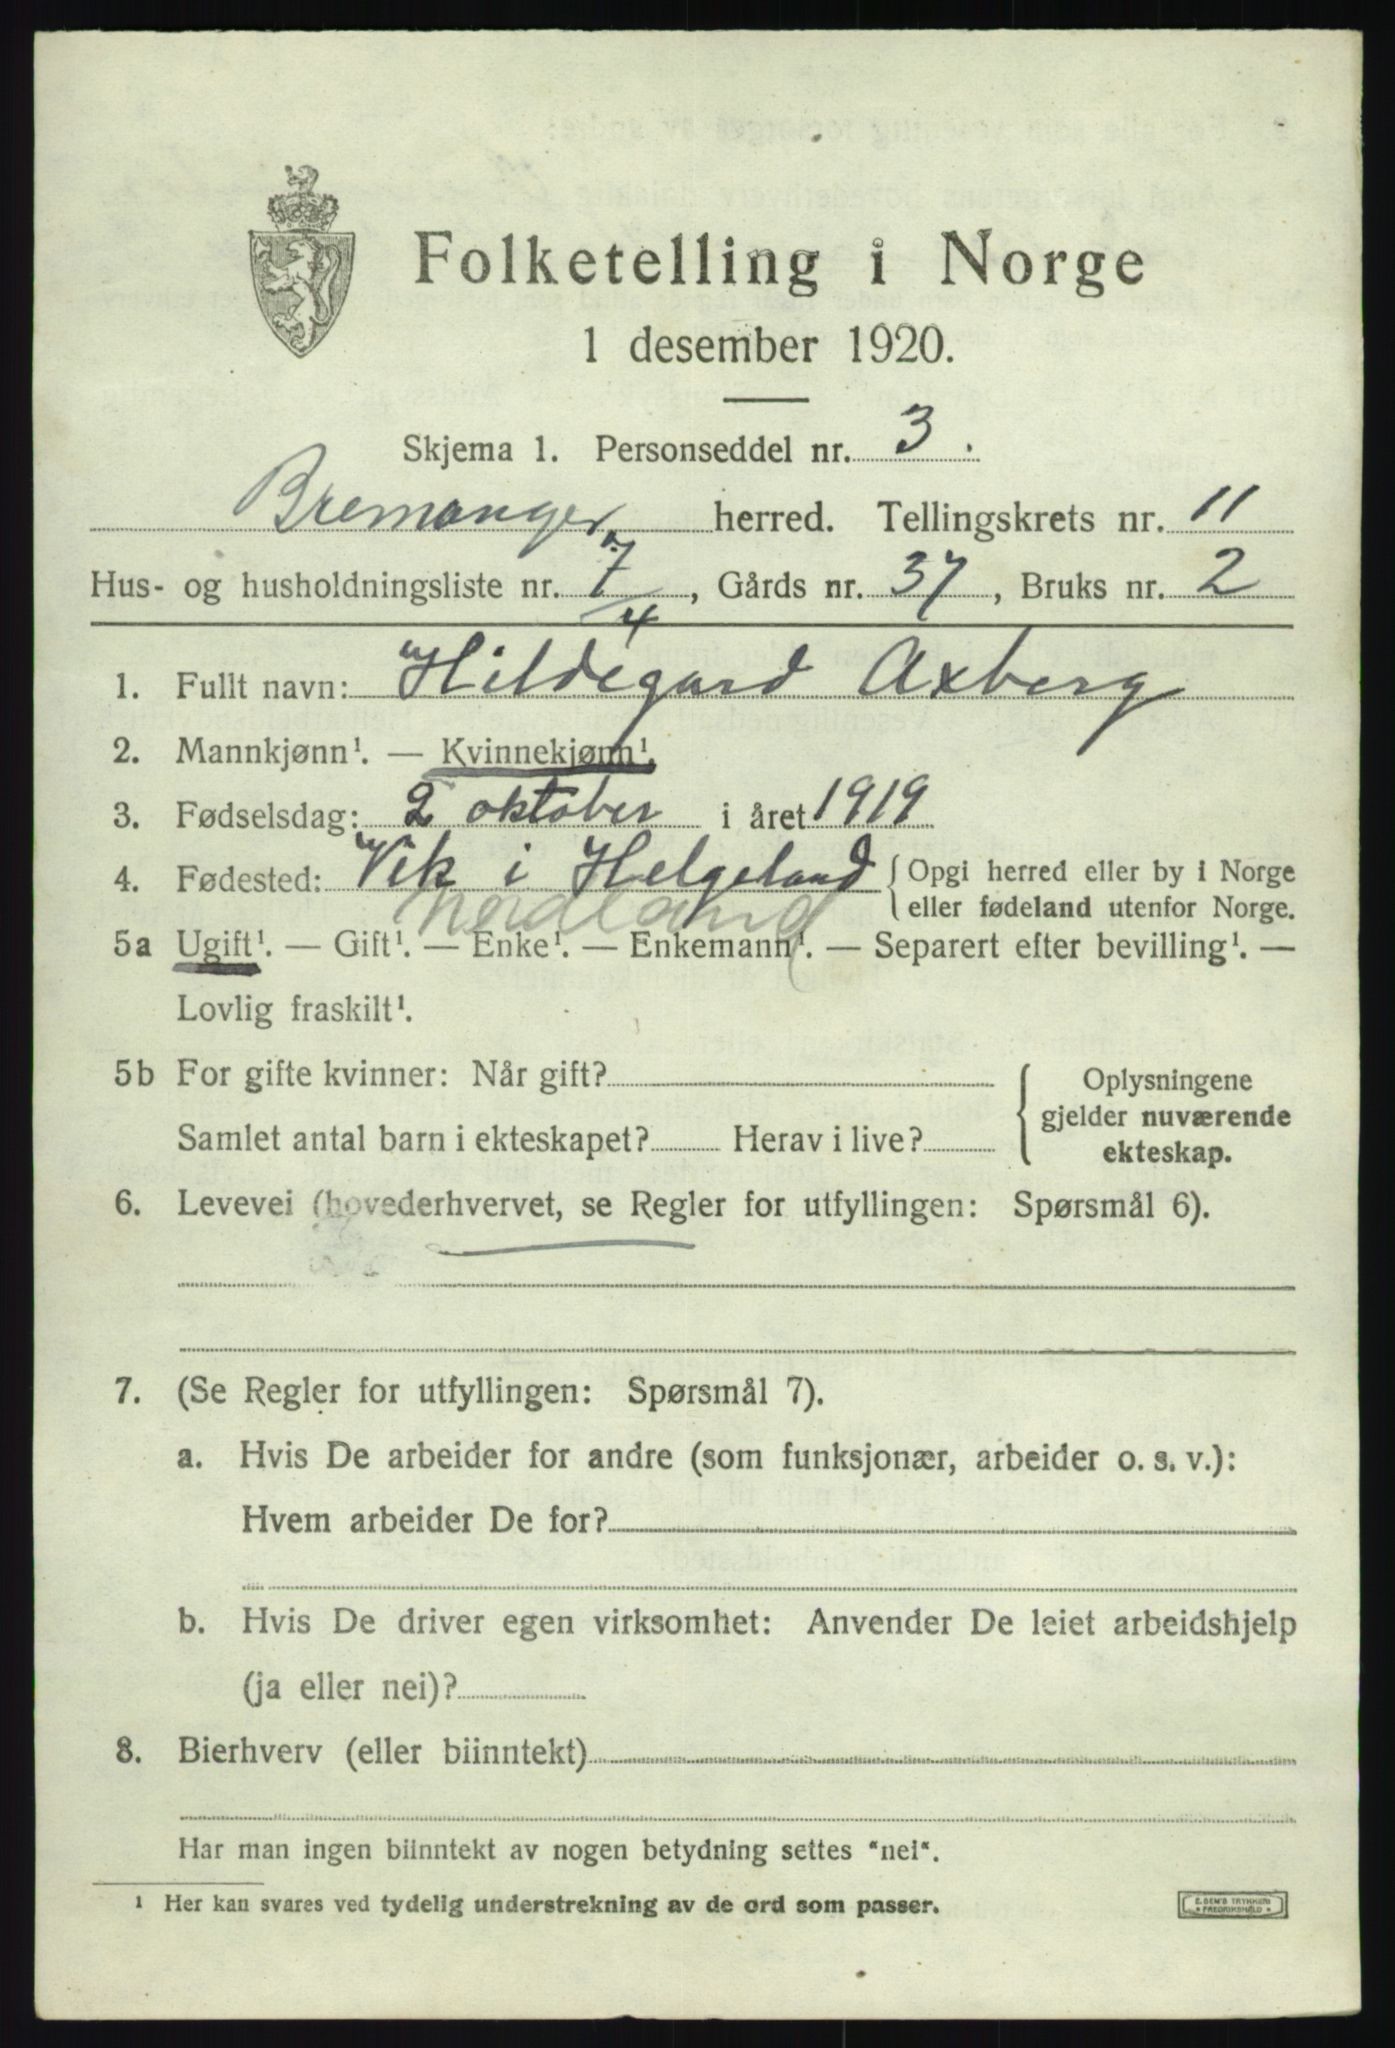 Folketelling i Norge
1 desember 1920.
Skjema 1. Personseddel nr. 3.
Bremanger herred. Tellingskrets nr. 11
Hus- og husholdningsliste nr. 7/4, Gårds nr. 37, Bruks nr. 2
1. Fullt navn: Hildegard Axberg
2. Mannkjønn¹. — Kvinnekjønn¹.
3. Fødselsdag: 2 oktober i året 1919
4. Fødested: Vik i Helgeland { Opgi herred eller by i Norge
eller fødeland utenfor Norge.
Nordland
5a Ugift¹. — Gift¹. — Enke¹. — Enkemann¹. — Separert efter bevilling¹. —
Lovlig fraskilt¹.
5b For gifte kvinner: Når gift?
Samlet antal barn i ekteskapet? Herav i live?
{ Oplysningene
gjelder nuværende
ekteskap.
6. Levevei (hovederhvervet, se Regler for utfyllingen: Spørsmål 6).
7. (Se Regler for utfyllingen: Spørsmål 7).
a. Hvis De arbeider for andre (som funksjonær, arbeider o. s. v.):
Hvem arbeider De for?
b. Hvis De driver egen virksomhet: Anvender De leiet arbeidshjelp
(ja eller nei)?
8. Bierhverv (eller biinntekt)
Har man ingen biinntekt av nogen betydning settes "nei".
¹ Her kan svares ved tydelig understrekning av de ord som passer.
E. SEM'S TRYKKERI
FREDRIKSHALD